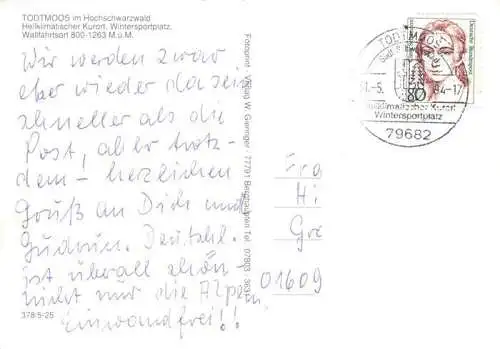 TODTMOOS im Hochschwarzwald
Heilklimatischer Kurort. Wintersportplatz.
Wallfahrtsort 800-1263 M.ü.M.
Wir werden zwar
eher wieder da sein
schneller als die
Post, aber trotz-
dem – herzlichen
Gruß an Dich und
Gudrun. Deutschl.
ist überall schön
nicht nur die Alpen.
Einwandfrei!!
378/5-25
Fotoprint Verlag W. Gieringer · 77791 Berghaupten Tel. 07803
TODTMOOS
80
Deutsche Bundespost
-5.
94-17
Heilklimatischer Kurort
Wintersportplatz
79682
Fra
Hi
Gro
01609